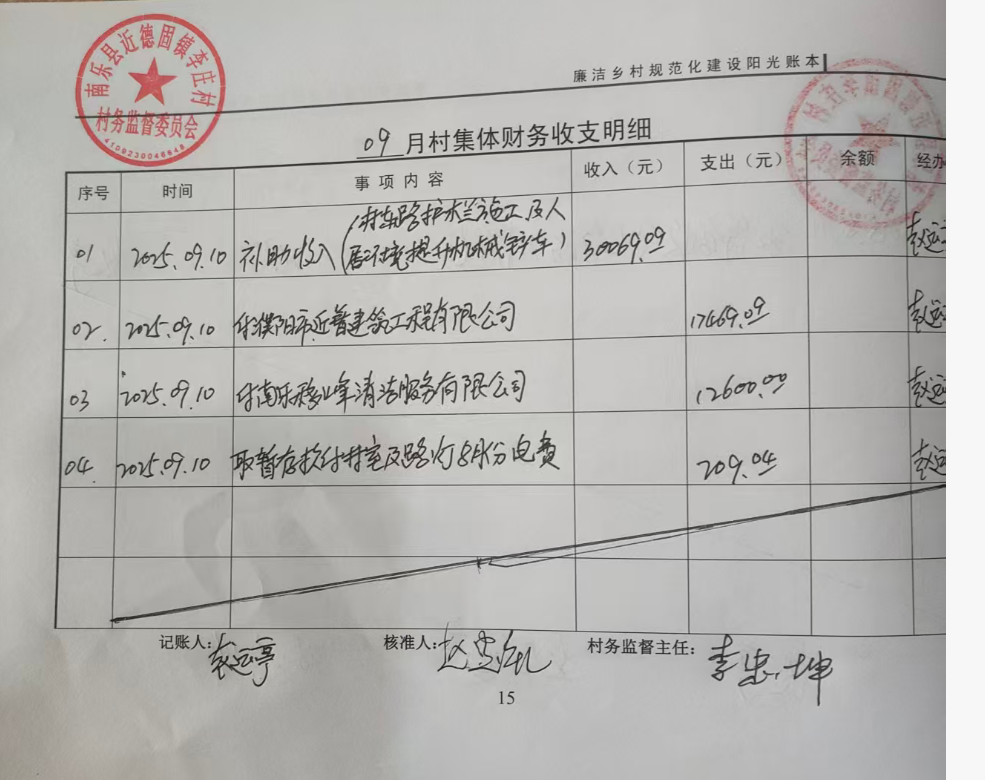 南乐县近德固镇李庄村
村务监督委员会
4109230046648
廉洁乡村规范化建设阳光账本
09月村集体财务收支明细
序号 时间 事项内容 收入（元） 支出（元） 余额 经办
01 2025.09.10 补助收入（村东路护栏施工及人居环境提升机械铲车） 30069.09
02. 2025.09.10 付濮阳市近普建筑工程有限公司 17469.09
03 2025.09.10 付南乐移峰清洁服务有限公司 12600.00
04. 2025.09.10 取暂存款付村室及路灯8月份电费 209.04
记账人: 赵运亭 核准人: 村务监督主任: 李忠坤
15